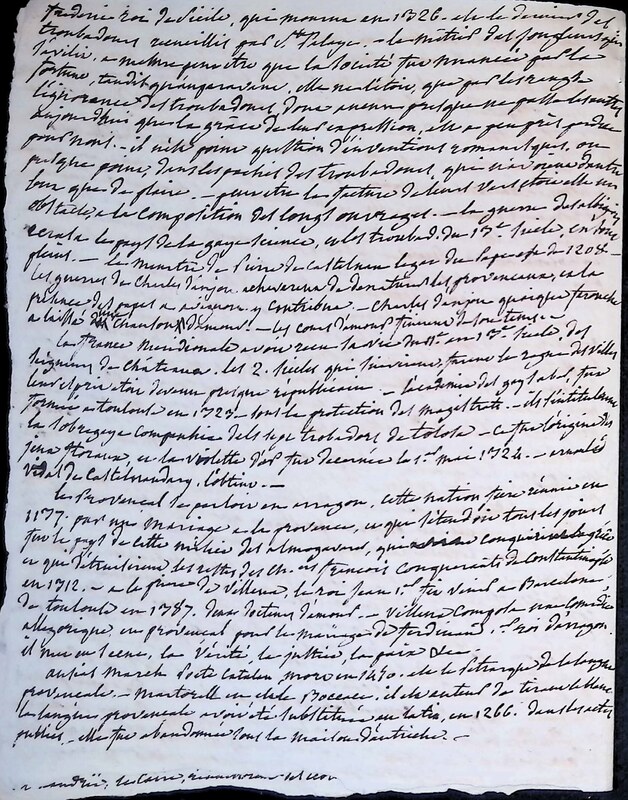 roi de Sicile, qui mourut en 1326. est le dernier des
troubadours recueillis par Ste Pelaye. — le métier des jongleurs
avilir, a mettre peut être que la société fut par la
fortune, elle n'étoit, que par les
l'ignorance des troubadours, dont aucun presque ne passe les
aujourd'hui que la grâce de leur expression, est a peu près perdue
pour nous. — il n'est point question d'inventions romanesques, ou
presque point, dans les poésies des troubadours, qui n'avoient d'autre
but que de plaire. — peut être la facture de leurs vers étoit elle un
obstacle, a la composition des longs ouvrages. — la guerre des albigeois
écrasa le pays de la gaye science, et les troubad. du 13e siècle, en
— le meurtre de Pierre de Castelnau legat du Pape est de 1208.
les guerres de Charles d'anjou acheverent de dénaturer les provençaux, et la
présence des papes a avignon y contribua. — Charles d'anjou quoique farouche
a laissé chansons d'amour. — les cours d'amour finirent
la france meridionale avoit reçu la vie au 11e et 12e siecle, des
seigneurs de chateaux. les 2. siècles qui suivirent, furent le regne des villes
leur esprit étoit devenu presque républicain — l'académie del gay sabes, fut
formée a toulouse en 1323. sous la protection des magistrats. — ils s'intituloient
la sobregaya companhia dels sept trobadors de tolosa. — ce fut l'origine des
jeux floraux, et la violette d'or fut décernée le 1er mai 1324. — arnauld
vidal de Castelnaudary, l'obtint. —
le Provençal se parloit en arragon. cette nation fut réunie en
1177. par un mariage a la provence, ce qui s'étendoit tous les jours
sur le pays de cette milice des almogavares, qui conquirent la grèce
et qui détruisirent les restes des ch. françois conquerants de Constantinople
en 1312. — a la priere de Villena, le roi Jean 1er fit venir a Barcelone
de toulouse en 1387. deux docteurs d'amour. — Villena composa une comédie
allegorique, en provençal pour le mariage de ferdinand 1. roi d'arragon.
il mit en scene, la Vérité, la justice, la paix &c.
ausias March Poete Catalan, mort en 1450. est le Petrarque de la langue
provencale. — Martorell en est le Boccace. il est auteur de tirant le blanc.
la langue provencale avoit été substituée au latin, en 1266. dans les actes
publics, elle fut abandonnée sous la maison d'autriche. —